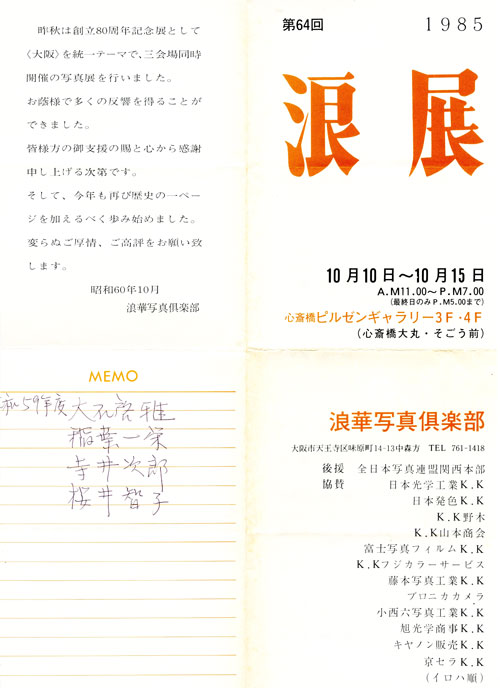 昨秋は創立80周年記念展として
〈大阪〉を統一テーマで、三会場同時
開催の写真展を行いました。
お蔭様で多くの反響を得ることが
できました。
皆様方の御支援の賜と心から感謝
申し上げる次第です。
そして、今年も再び歴史の一ペー
ジを加えるべく歩み始めました。
変らぬご厚情、ご高評をお願い致
します。
昭和60年10月
浪華写真倶楽部
第64回
1985
浪展
10月10日〜10月15日
A.M11.00〜P.M7.00
(最終日のみP.M5.00まで)
心斎橋ピルゼンギャラリー3F・4F
(心斎橋大丸・そごう前)
MEMO
昭和59年度 大石啓雅
稲葉一栄
寺井次郎
桜井智子
浪華写真倶楽部
大阪市天王寺区味原町14-13中森方 TEL 761-1418
後援 全日本写真連盟関西本部
協賛 日本光学工業K.K
日本発色K.K
K.K野木
K.K山本商会
富士写真フイルムK.K
K.Kフジカラーサービス
藤本写真工業K.K
ブロニカカメラ
小西六写真工業K.K
旭光学商事K.K
キヤノン販売K.K
京セラK.K
(イロハ順)